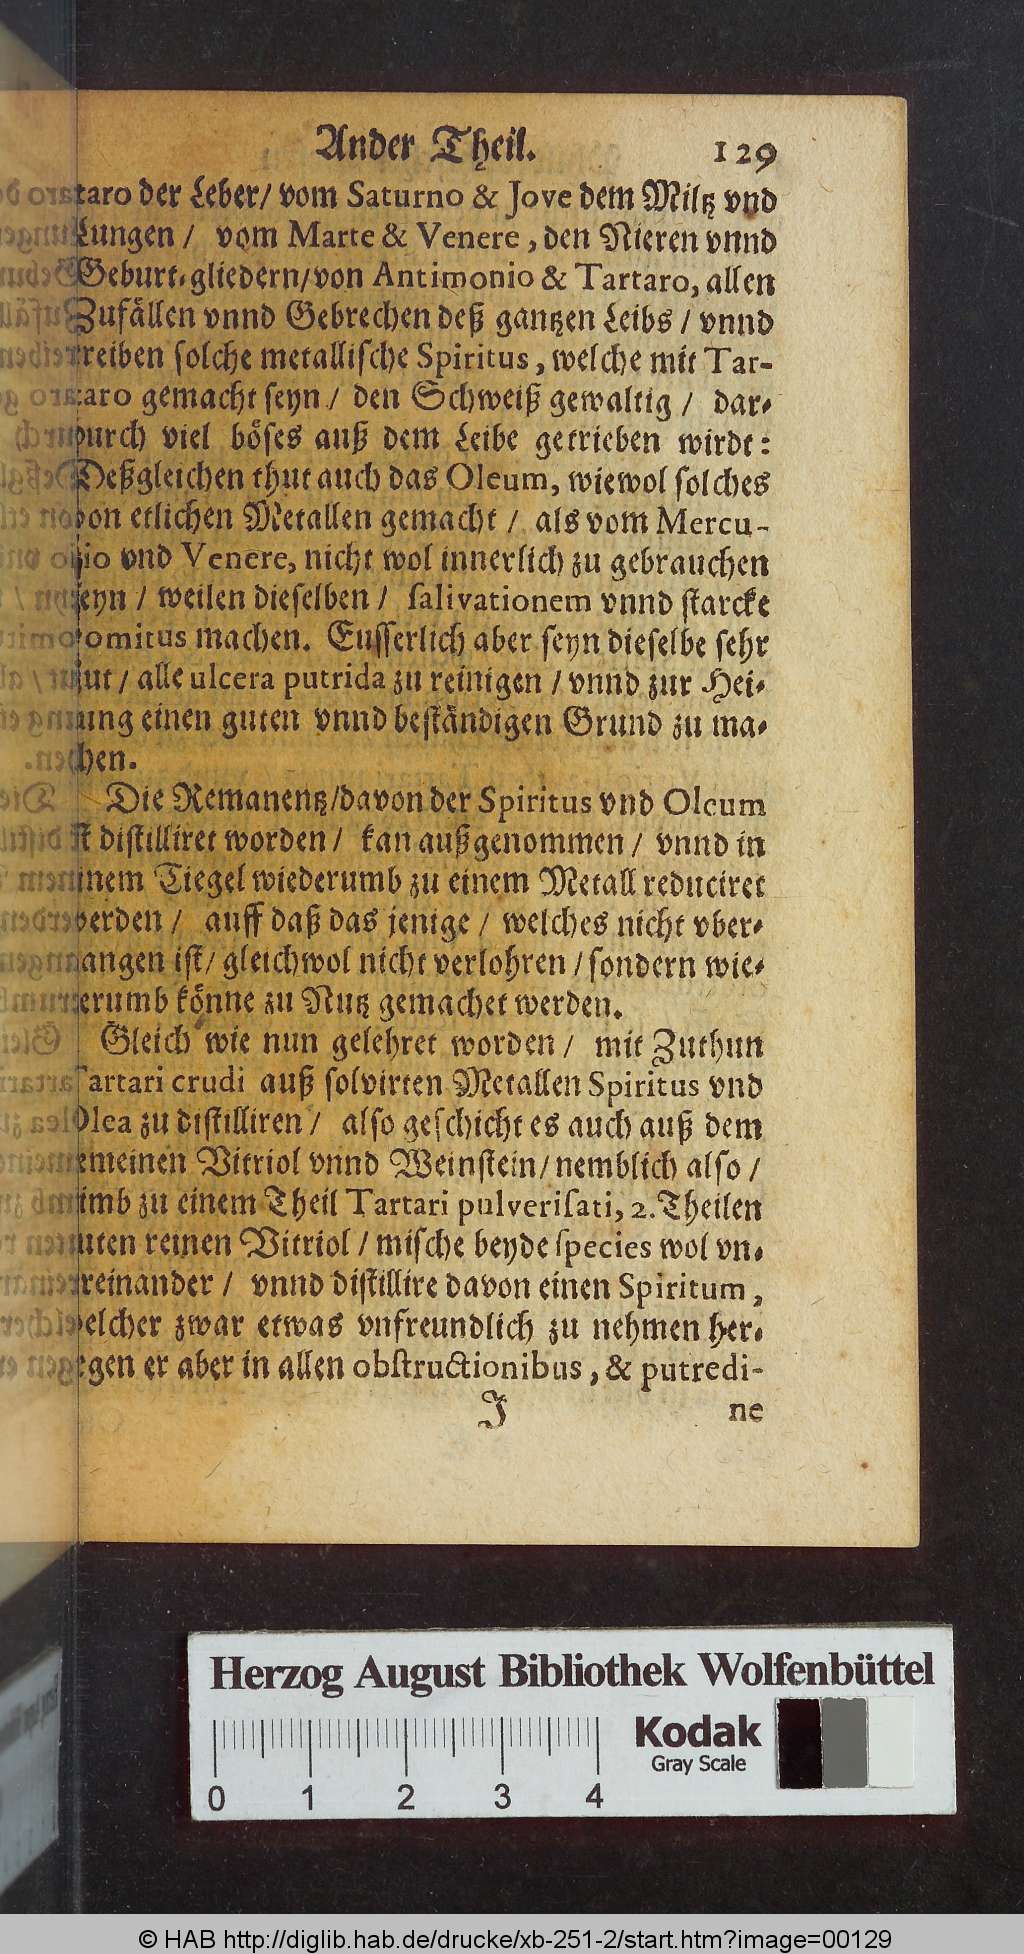 Ander Theil. 129
taro der Leber/ vom Saturno & Jove dem Miltz vnd
Lungen / vom Marte & Venere, den Nieren vnnd
Geburt-gliedern/von Antimonio & Tartaro, allen
Zufällen vnnd Gebrechen deß gantzen Leibs / vnnd
treiben solche metallische Spiritus, welche mit Tar-
taro gemacht seyn / den Schweiß gewaltig / dar-
durch viel böses auß dem Leibe getrieben wirdt:
Deßgleichen thut auch das Oleum, wiewol solches
von etlichen Metallen gemacht / als vom Mercu-
rio vnd Venere, nicht wol innerlich zu gebrauchen
seyn / weilen dieselben / salivationem vnnd starcke
vomitus machen. Eusserlich aber seyn dieselbe sehr
gut / alle ulcera putrida zu reinigen / vnnd zur Hei-
lung einen guten vnnd beständigen Grund zu ma-
chen.
Die Remanentz/davon der Spiritus vnd Oleum
ist distilliret worden / kan außgenommen / vnnd in
einem Tiegel wiederumb zu einem Metall reduciret
werden / auff daß das jenige / welches nicht vber-
gangen ist/ gleichwol nicht verlohren / sondern wie-
derumb könne zu Nutz gemachet werden.
Gleich wie nun gelehret worden / mit Zuthun
Tartari crudi auß solvirten Metallen Spiritus vnd
Olea zu distilliren / also geschicht es auch auß dem
gemeinen Vitriol vnnd Weinstein/ nemblich also /
nimb zu einem Theil Tartari pulverisati, 2. Theilen
guten reinen Vitriol / mische beyde species wol vn-
tereinander / vnnd distillire davon einen Spiritum,
welcher zwar etwas vnfreundlich zu nehmen her-
gegen er aber in allen obstructionibus, & putredi-
J ne
Herzog August Bibliothek Wolfenbüttel
Kodak
Gray Scale
0 1 2 3 4
© HAB http://diglib.hab.de/drucke/xb-251-2/start.htm?image=00129